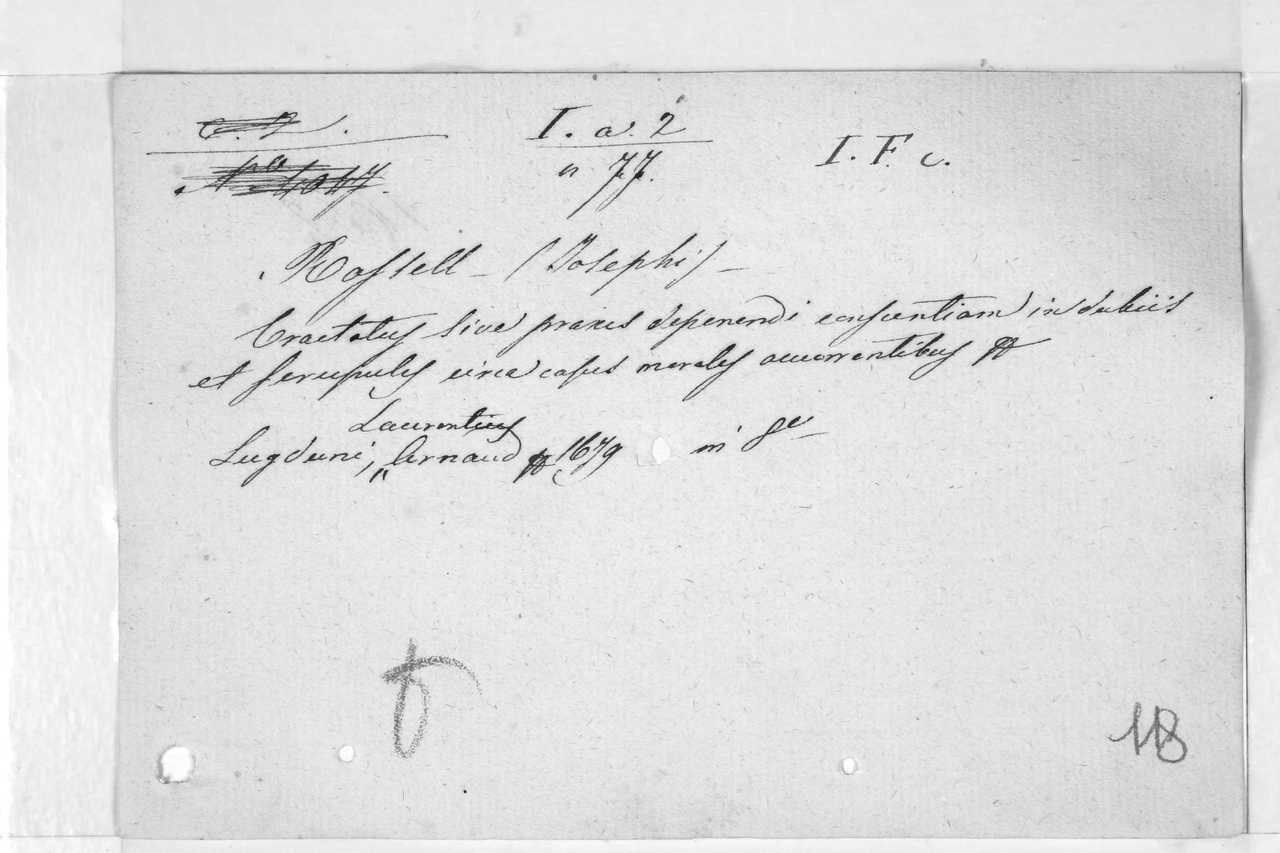 I. a. 2
n 77.
I. F. c.
Rossell - (Josephi) -
Tractatus sive praxis deponendi conscientiam in dubiis
et scrupulis circa casus morales occurrentibus
Laurentius
Lugduni, Arnaud 1679 in 8o
118